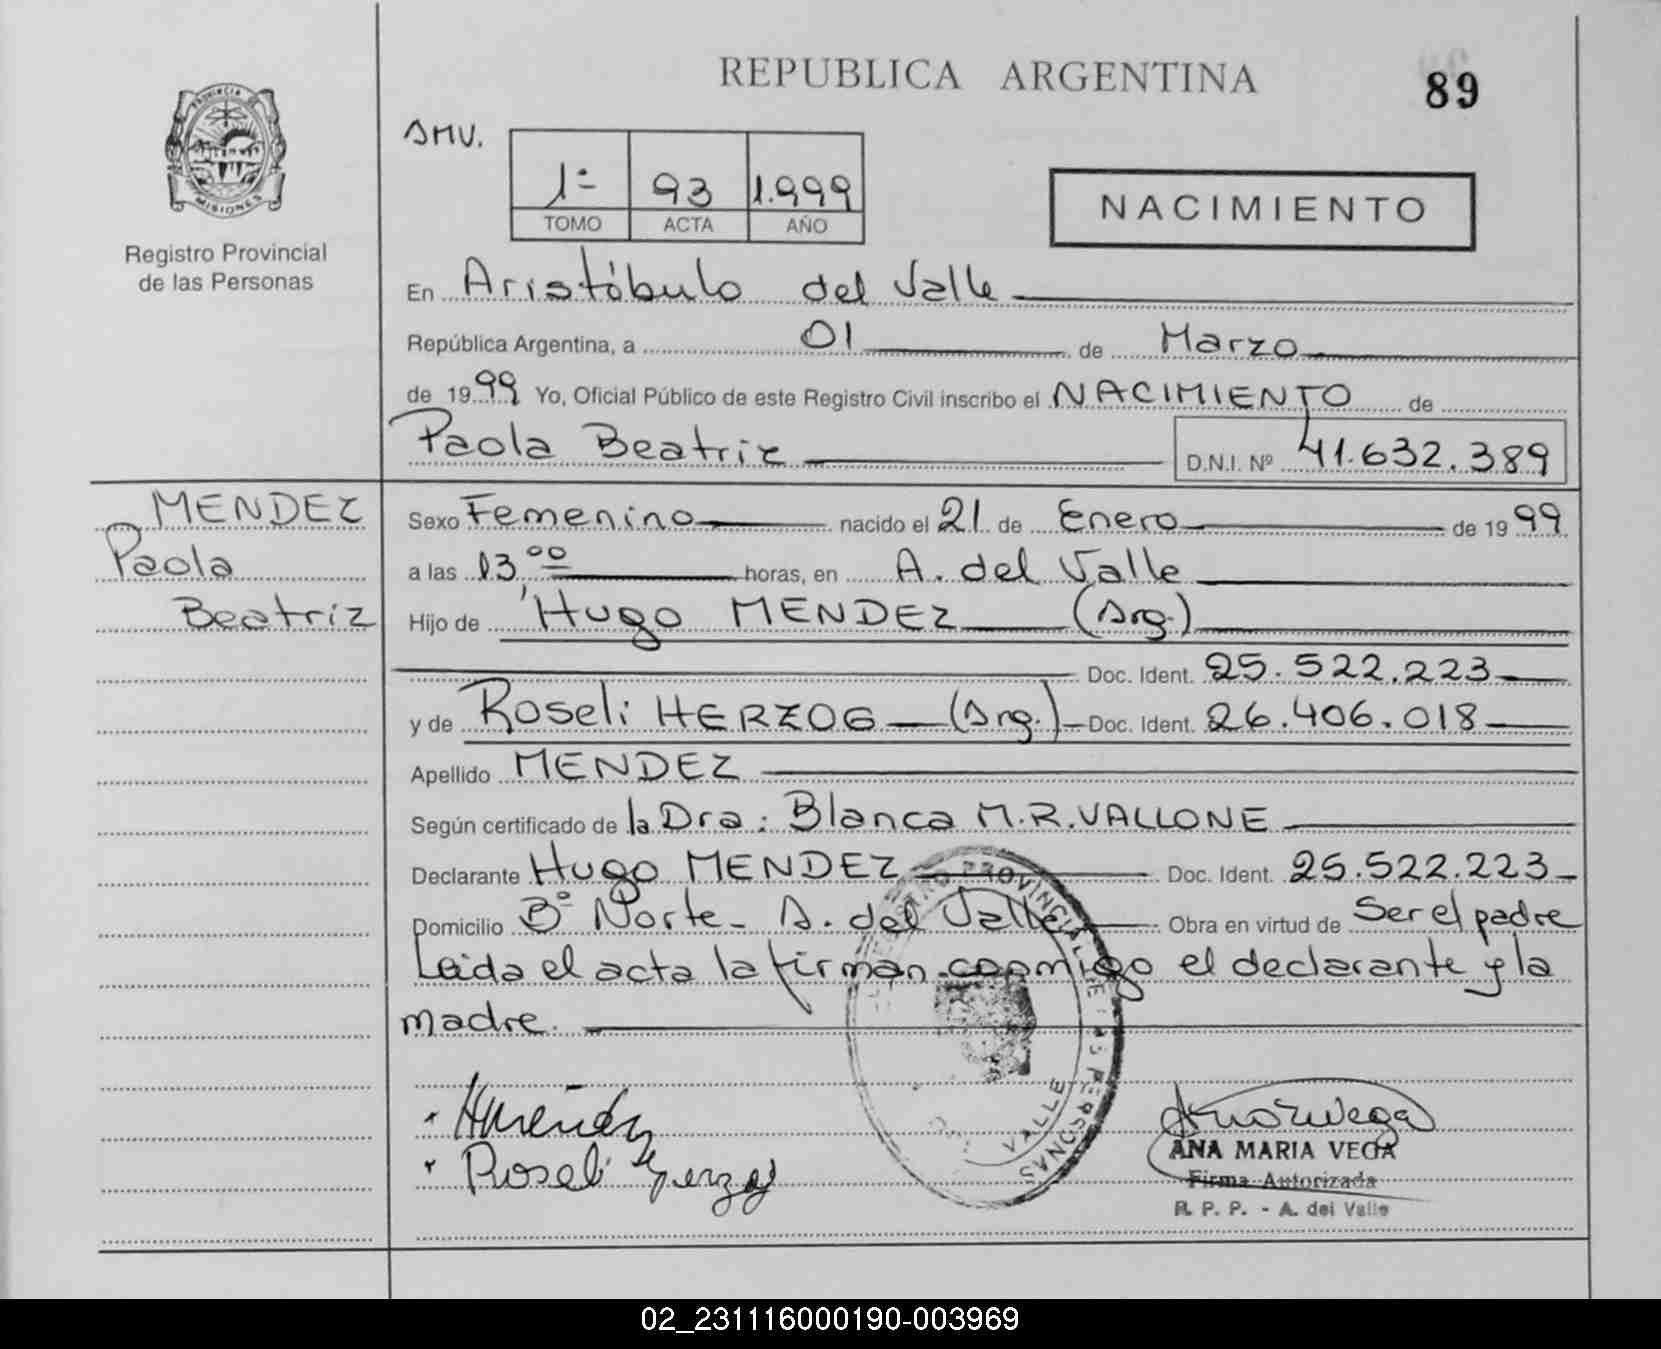 REPUBLICA ARGENTINA
89
PROVINCIA DE
MISIONES
Registro Provincial
de las Personas
SMV.
1º 93 1.999
TOMO ACTA AÑO
NACIMIENTO
En Aristóbulo del Valle
República Argentina, a 01 de Marzo
de 1999 Yo, Oficial Público de este Registro Civil inscribo el NACIMIENTO de
Paola Beatriz D.N.I. Nº 41.632.389
MENDEZ
Paola
Beatriz
Sexo Femenino nacido el 21 de Enero de 1999
a las 13,00 horas, en A. del Valle
Hijo de Hugo MENDEZ (Arg.)
Doc. Ident. 25.522.223
y de Roseli HERZOG (Arg.) Doc. Ident. 26.406.018
Apellido MENDEZ
Según certificado de la Dra: Blanca M.R. VALLONE
Declarante Hugo MENDEZ Doc. Ident. 25.522.223
Domicilio Bº Norte - A. del Valle Obra en virtud de Ser el padre
Leida el acta la firman conmigo el declarante y la
madre.
PROVINCIAL DE LAS PERSONAS
DEL VALLE
HMendez
Roseli Herzog
ANA MARIA VEGA
Firma Autorizada
R. P. P. - A. del Valle
02_231116000190-003969